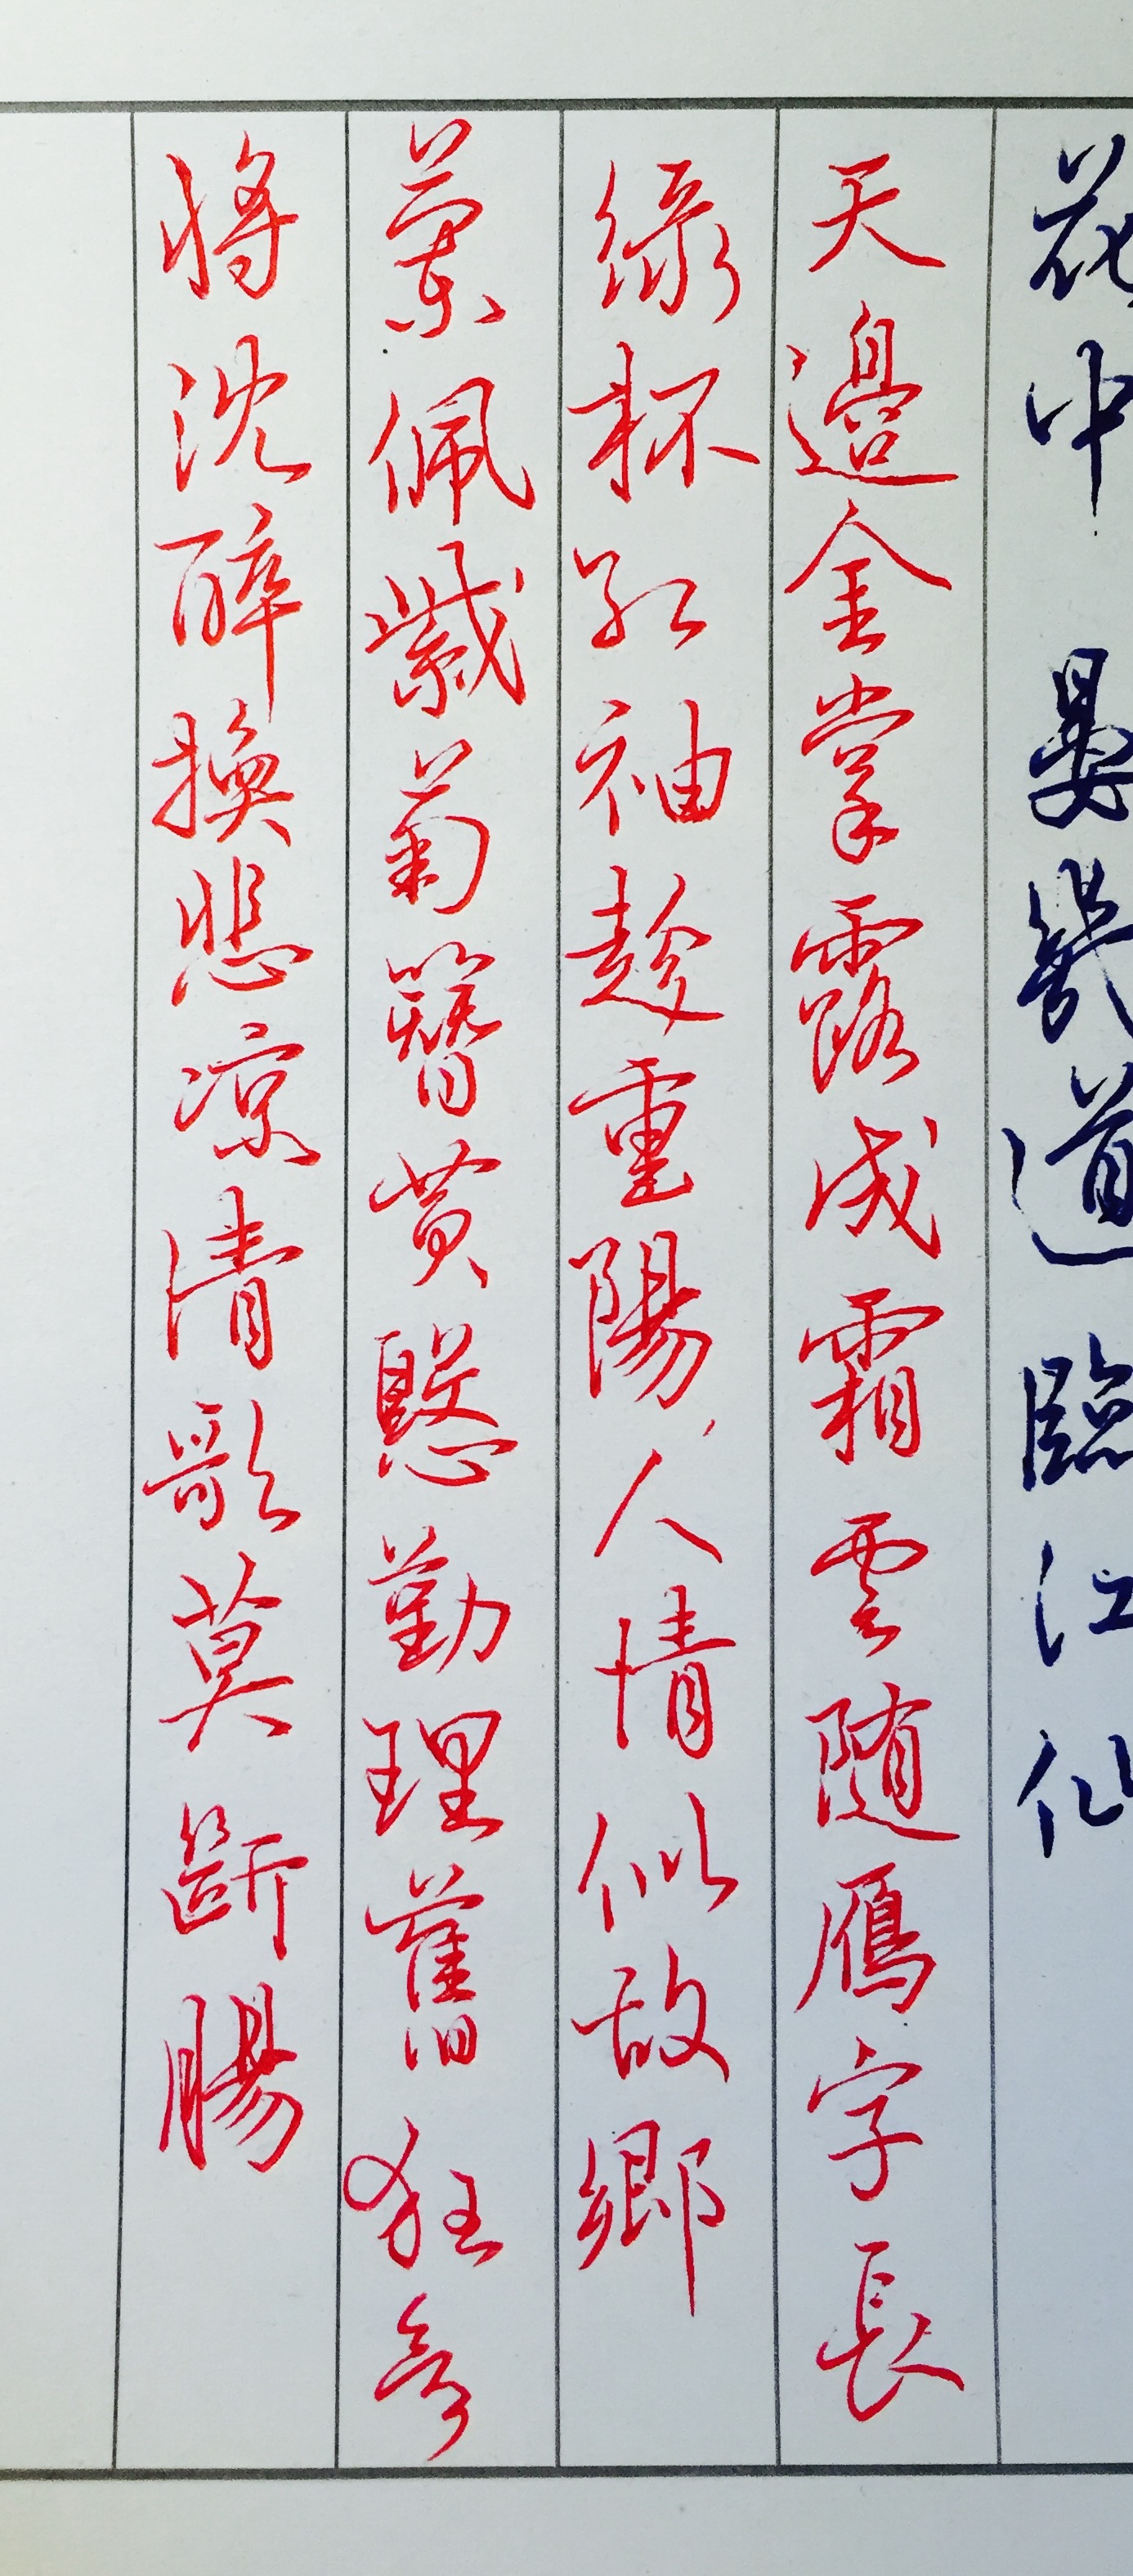 花中 晏幾道 臨江仙
天邊金掌露成霜雲随鴈字長
綠杯紅袖趁重陽人情似故鄉
蘭佩紫菊簪黄慇勤理舊狂欲
將沈醉換悲凉清歌莫斷腸